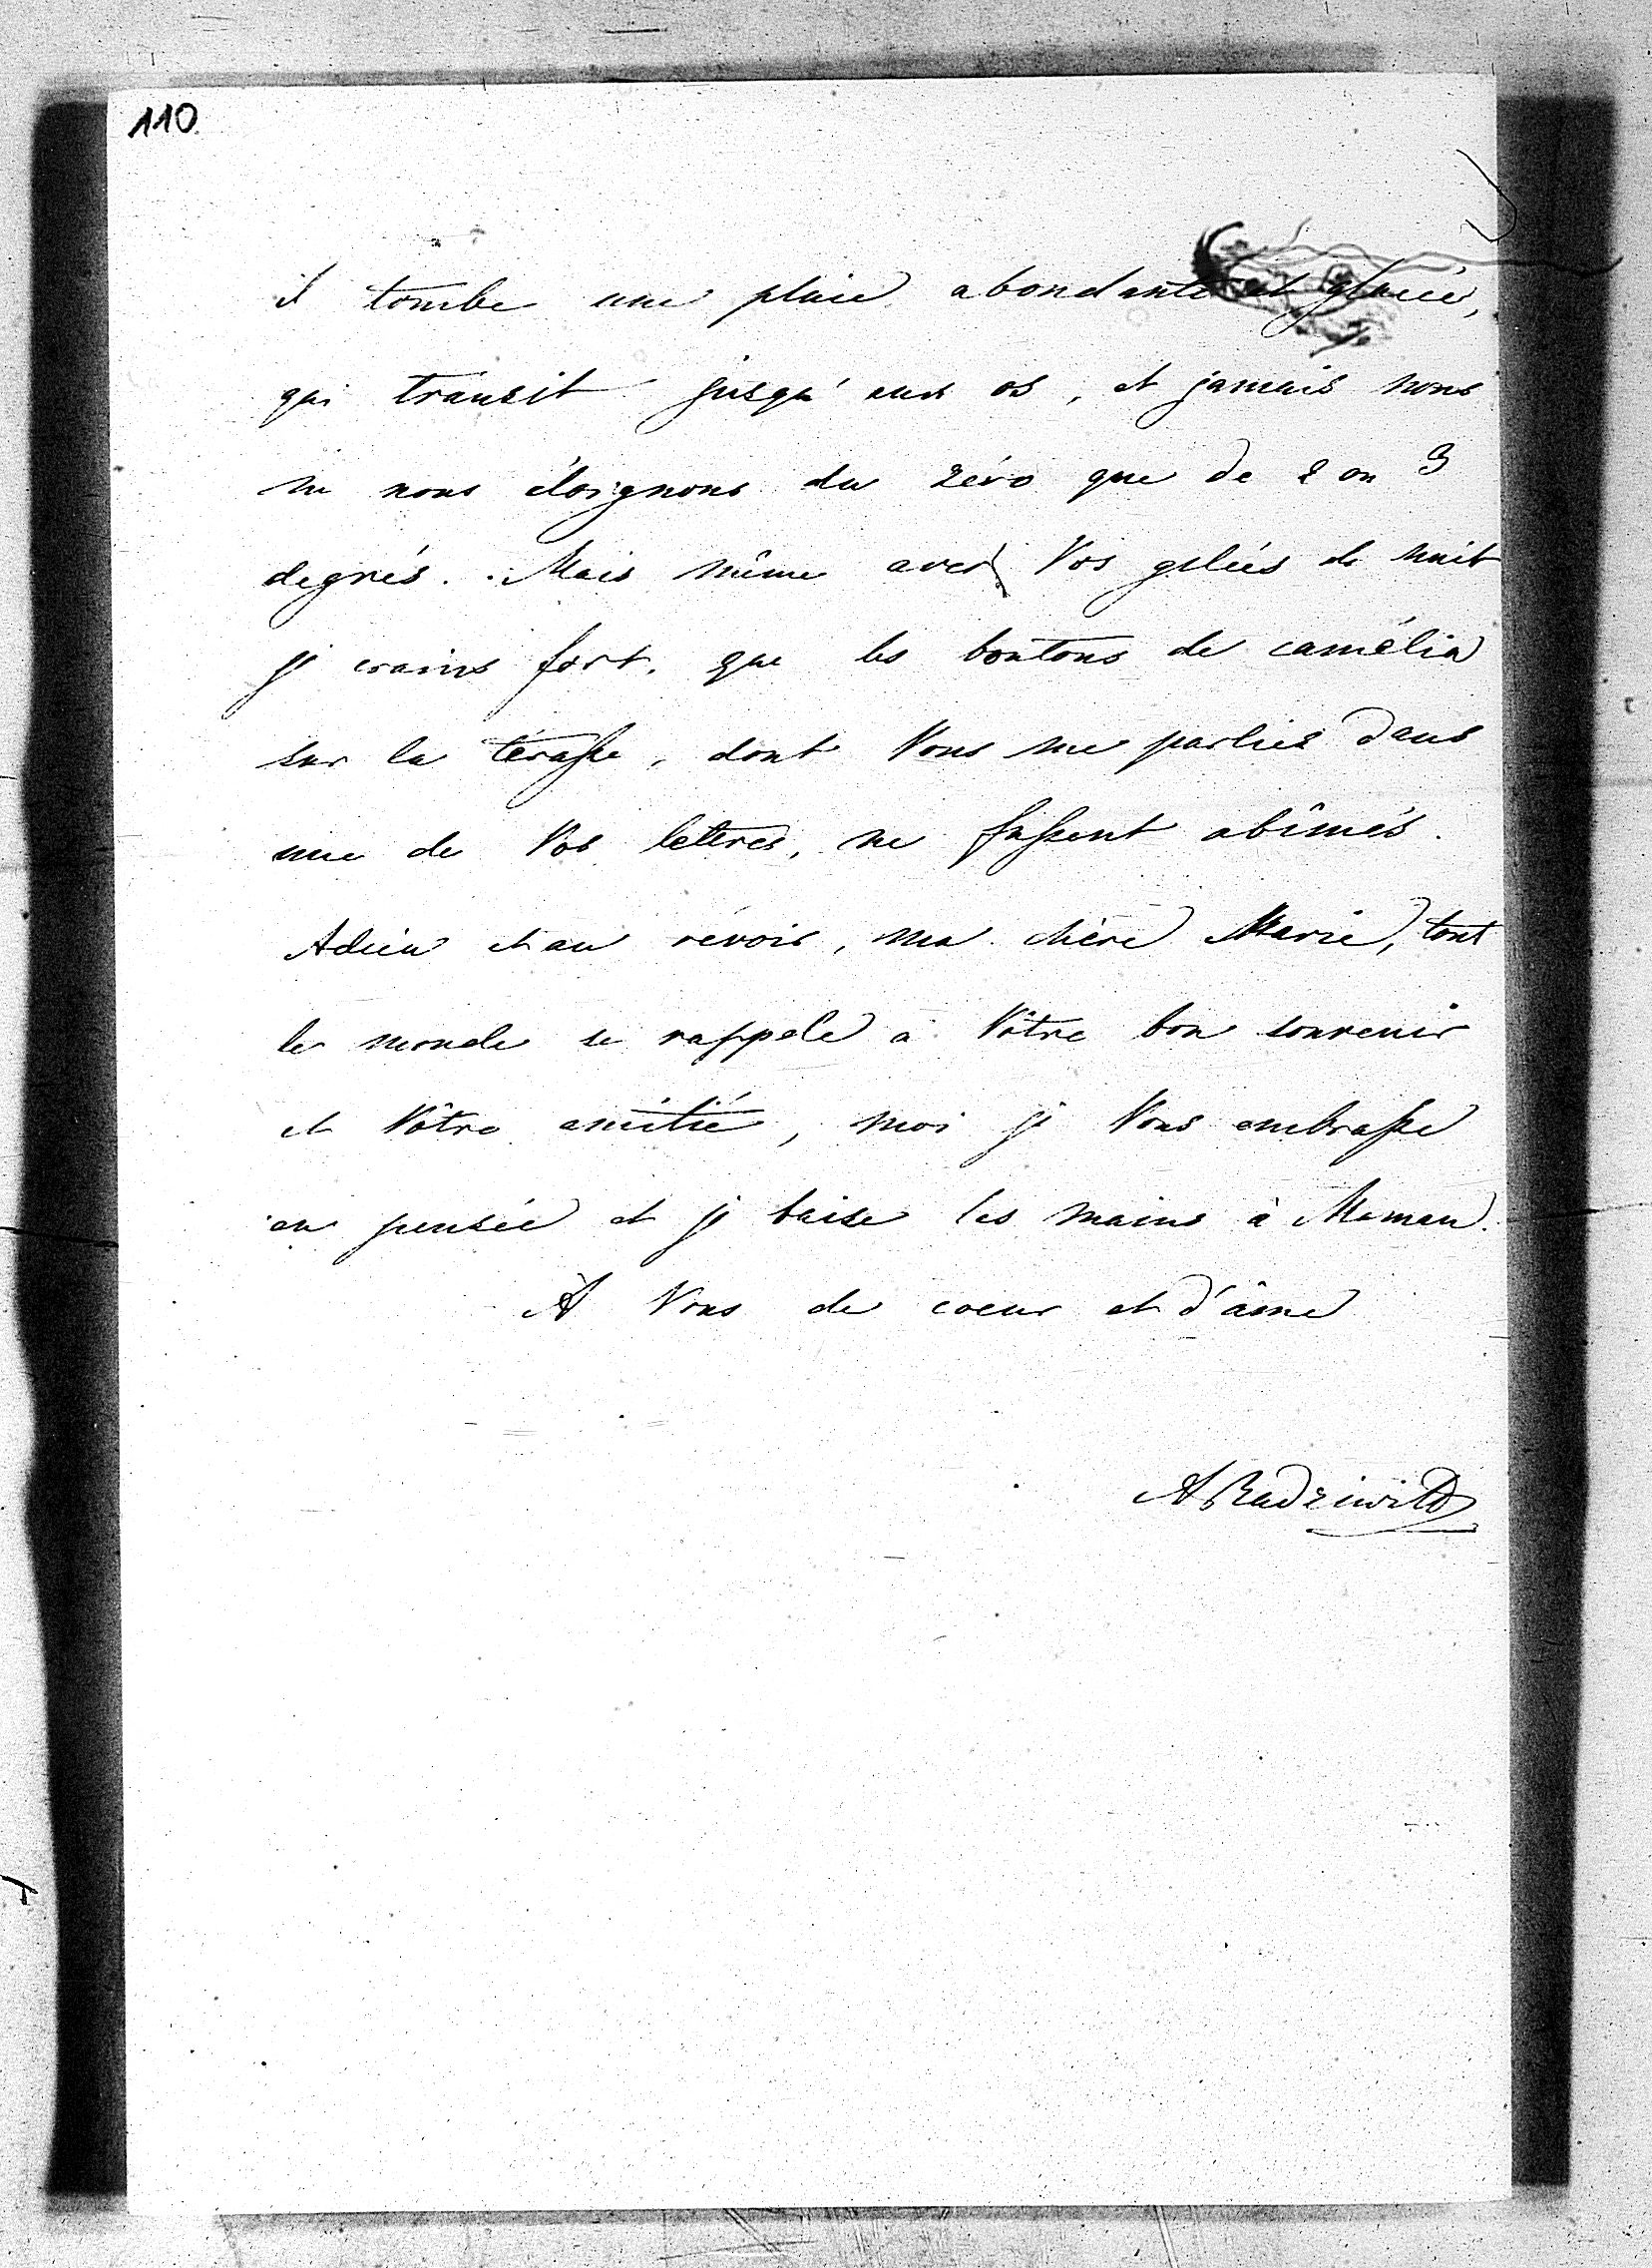 110
il tombe une pluie abondante et glacée,
qui transit jusqu'aux os, et jamais nous
ne nous éloignons du zéro que de 2 ou 3
degrés. Mais même avec Vos gelées de nuit
je crains fort, que les boutons de camélia
sur la térasse, dont Vous me parliez dans
une de Vos lettres, ne fussent abîmés.
Adieu et au révoir, ma chère Marie, tout
le monde se rappele à Vôtre bon souvenir
et Vôtre amitié, moi je Vous embrasse
en pensée et je baise les mains à Maman.
À Vous de coeur et d'âme
ARadziwiłł